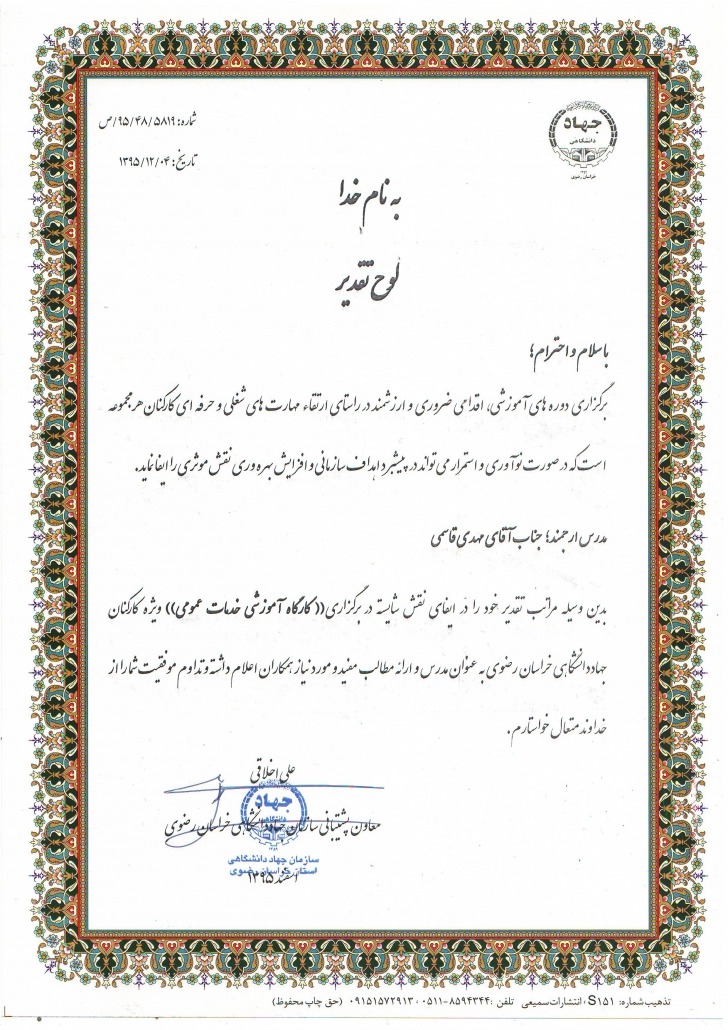 جهاد
دانشگاهی
خراسان رضوی
شماره: ۹۵/۴۸/۵۸۱۹/ص
تاریخ: ۱۳۹۵/۱۲/۰۴
به نام خدا
لوح تقدیر
با سلام و احترام؛
برگزاری دوره های آموزشی، اقدامی ضروری و ارزشمند در راستای ارتقاء مهارت های شغلی و حرفه ای کارکنان هر مجموعه
است که در صورت نوآوری و استمرار می تواند در پیشبرد اهداف سازمانی و افزایش بهره وری نقش موثری را ایفا نماید.
مدرس ارجمند؛ جناب آقای مهدی قاسمی
بدین وسیله مراتب تقدیر خود را در ایفای نقش شایسته در برگزاری (( کارگاه آموزشی خدمات عمومی)) ویژه کارکنان
جهاددانشگاهی خراسان رضوی به عنوان مدرس و ارائه مطالب مفید و مورد نیاز همکاران اعلام داشته و تداوم موفقیت شما را از
خداوند متعال خواستارم.
علی اخلاقی
معاون پشتیبانی سازمان جهاددانشگاهی خراسان رضوی
جهاد
دانشگاهی
سازمان جهاد دانشگاهی
استان خراسان رضوی
اسفند ۱۳۹۵
تذهیب شماره: S۱۵۱ ، انتشارات سمیعی تلفن: ۸۵۹۴۳۴۴-۰۵۱۱ ، ۰۹۱۵۱۵۷۲۹۱۳ (حق چاپ محفوظ)